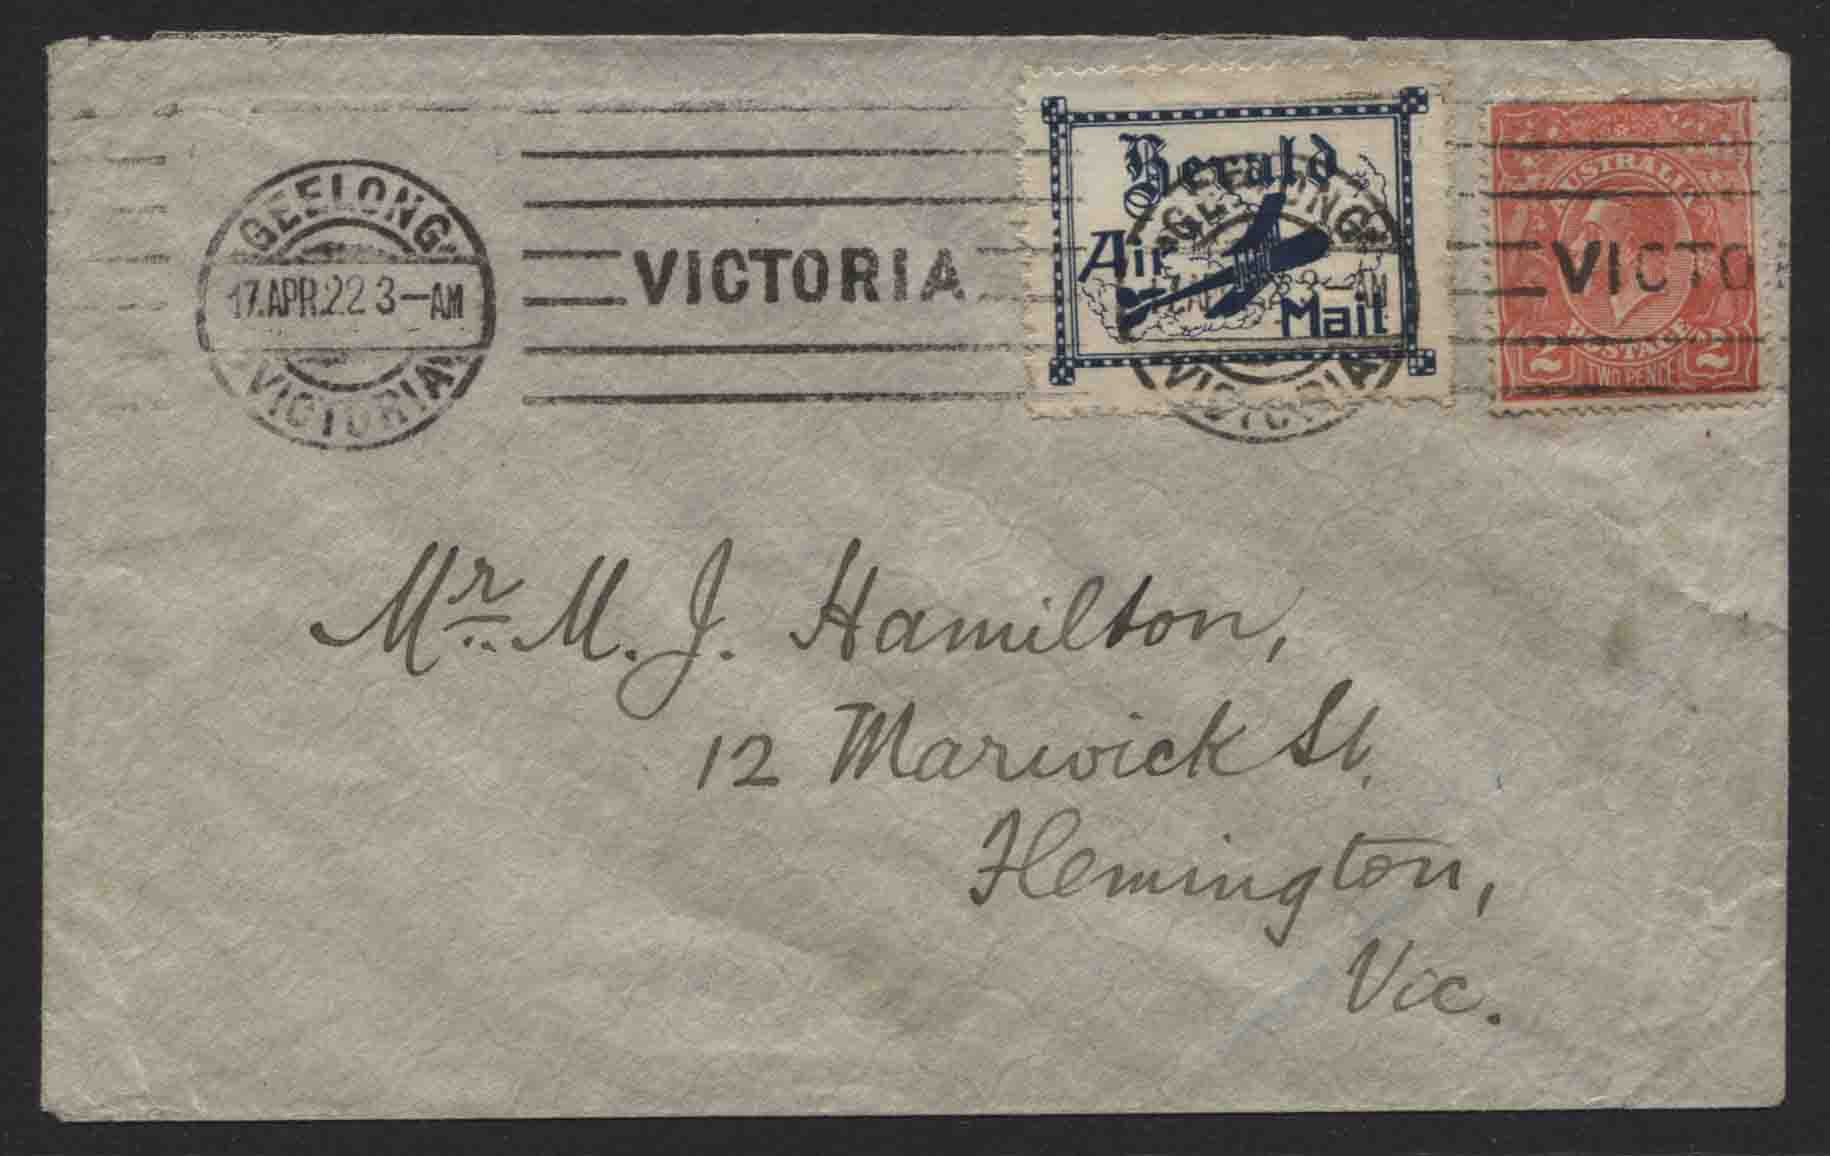 GEELONG
17.APR.22 3-AM
VICTORIA
VICTORIA
Herald
Air
Mail
GEELONG
VICTORIA
AUSTRALIA
VICTO
POSTAGE
2 TWO PENCE 2
Mr. M. J. Hamilton,
12 Marwick St.
Flemington,
Vic.